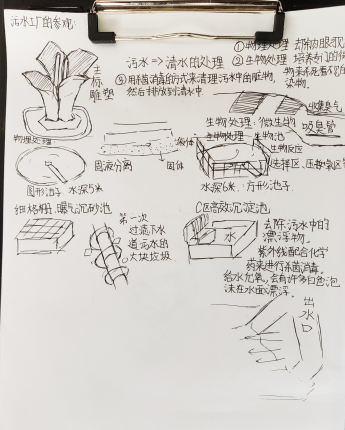 污水厂的参观
①物理处理
污水 => 清水的处理
②生物处理 培养专门的
③用杀菌消毒的方式来清理污水中的脏物,
然后排放到清水中
染物.
去标
雕塑
收集臭气
吸臭管
生物处理:微生物
生物处理:生物池
生物反应
物理处理
液体
固液分离
固体
选择区、厌
圆形池子 水深5米
水深6米 方形池子
细格栅、曝气沉砂池
第一次
过滤下水
道污水的
大块垃圾
C区高效沉淀池
水
去除污水中的
漂浮物.
紫外线配合化学
药来进行杀菌消毒.
给水充氧,会有许多白色泡
沫在水面漂浮.
出水口